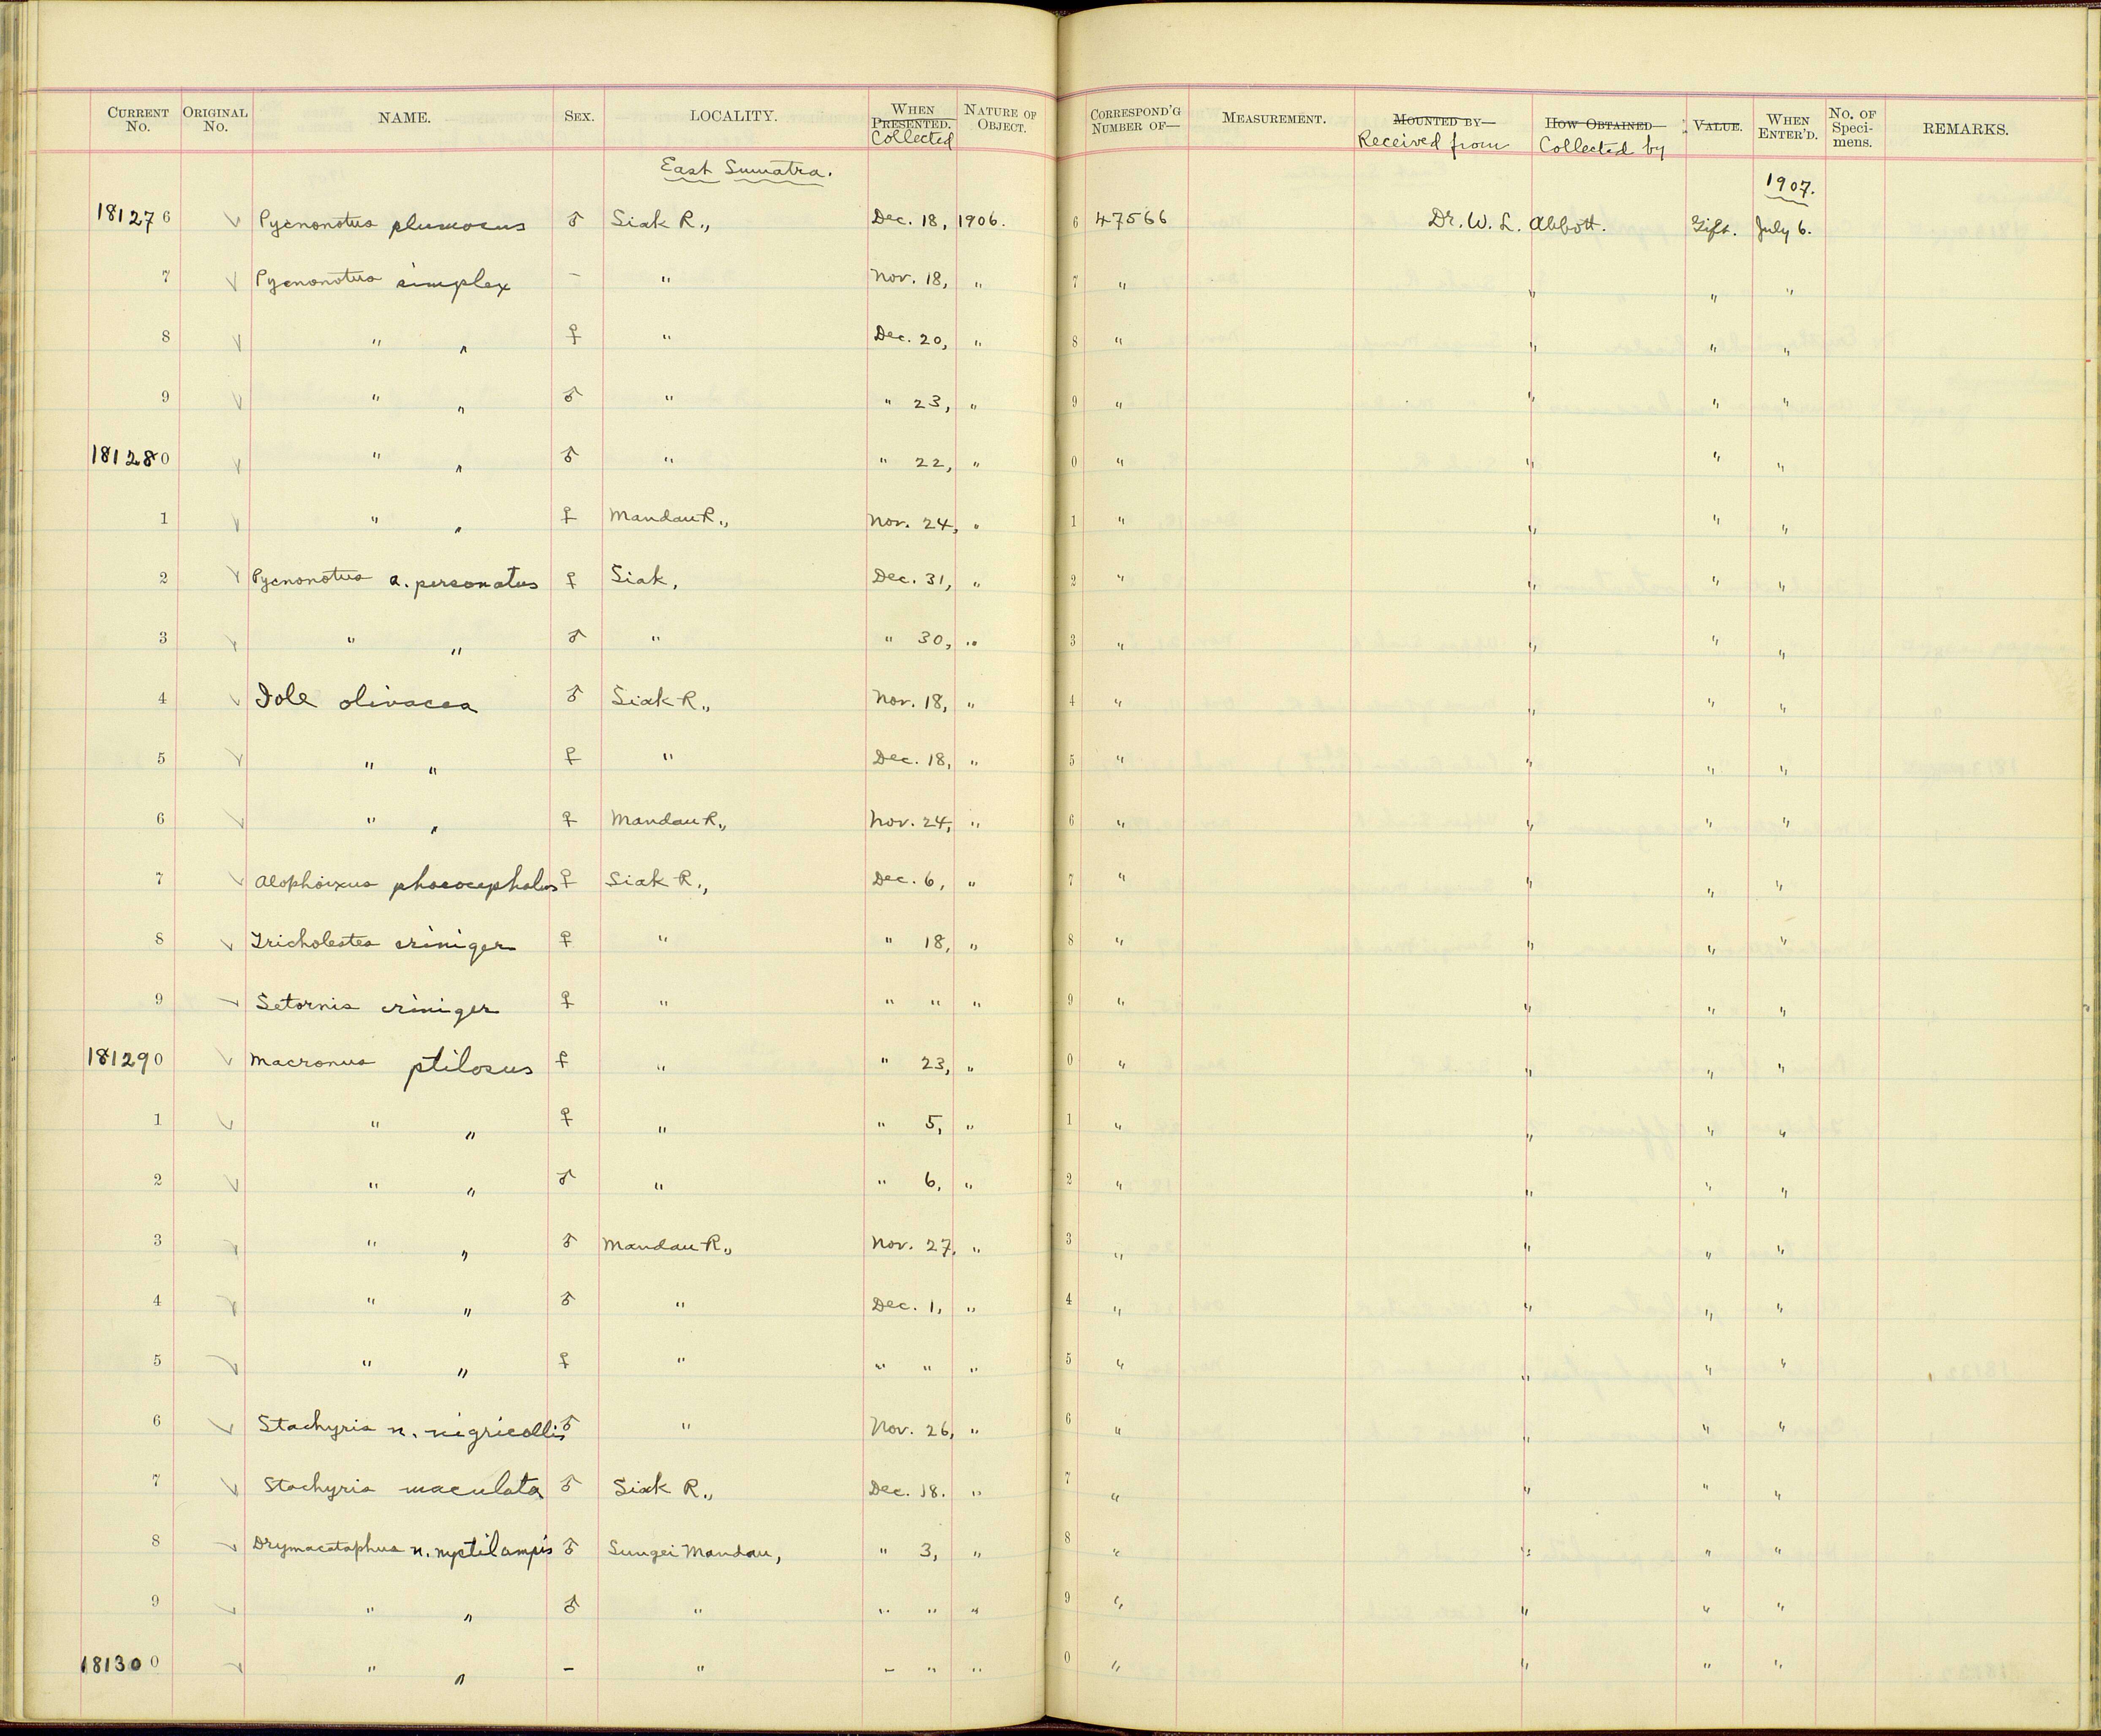 CURRENT No. ORIGINAL No. NAME. SEX. LOCALITY. WHEN PRESENTED. Collected NATURE OF OBJECT. CORRESPOND'G NUMBER OF— MEASUREMENT. MOUNTED BY— Received from HOW OBTAINED— Collected by VALUE. WHEN ENTER'D. No. OF Speci-mens. REMARKS.
East Sumatra. 1907.
181276 √ Pycnonotus plumosus ♂ Siak R., Dec. 18, 1906. 6 47566 Dr. W. L. Abbott. Gift. July 6.
7 √ Pycnonotus simplex – " Nov. 18, " 7 " " " "
8 √ " " ♀ " Dec. 20, " 8 " " " "
9 √ " " ♂ " " 23, " 9 " " " "
181280 √ " " ♂ " " 22, " 0 " " " "
1 √ " " ♀ Mandau R., Nov. 24, " 1 " " " "
2 √ Pycnonotus a. personatus ♀ Siak, Dec. 31, " 2 " " " "
3 √ " " ♂ " " 30, " 3 " " " "
4 √ Iole olivacea ♂ Siak R., Nov. 18, " 4 " " " "
5 √ " " ♀ " Dec. 18, " 5 " " " "
6 √ " " ♀ Mandau R., Nov. 24, " 6 " " " "
7 √ Alophoixus phaeocephalus ♀ Siak R., Dec. 6, " 7 " " " "
8 √ Tricholestes criniger ♀ " " 18, " 8 " " " "
9 √ Setornis criniger ♀ " " " " 9 " " " "
181290 √ Macronus ptilosus ♀ " " 23, " 0 " " " "
1 √ " " ♀ " " 5, " 1 " " " "
2 √ " " ♂ " " 6, " 2 " " " "
3 √ " " ♂ Mandau R., Nov. 27, " 3 " " " "
4 √ " " ♂ " Dec. 1, " 4 " " " "
5 √ " " ♀ " " " " 5 " " " "
6 √ Stachyris n. nigricollis ♂ " Nov. 26, " 6 " " " "
7 √ Stachyris maculata ♂ Siak R., Dec. 18. " 7 " " " "
8 √ Drymacataphus n. nyctilampis ♂ Sungei Mandau, " 3, " 8 " " " "
9 √ " " ♂ " " " " 9 " " " "
181300 √ " " – " – " " 0 " " " "